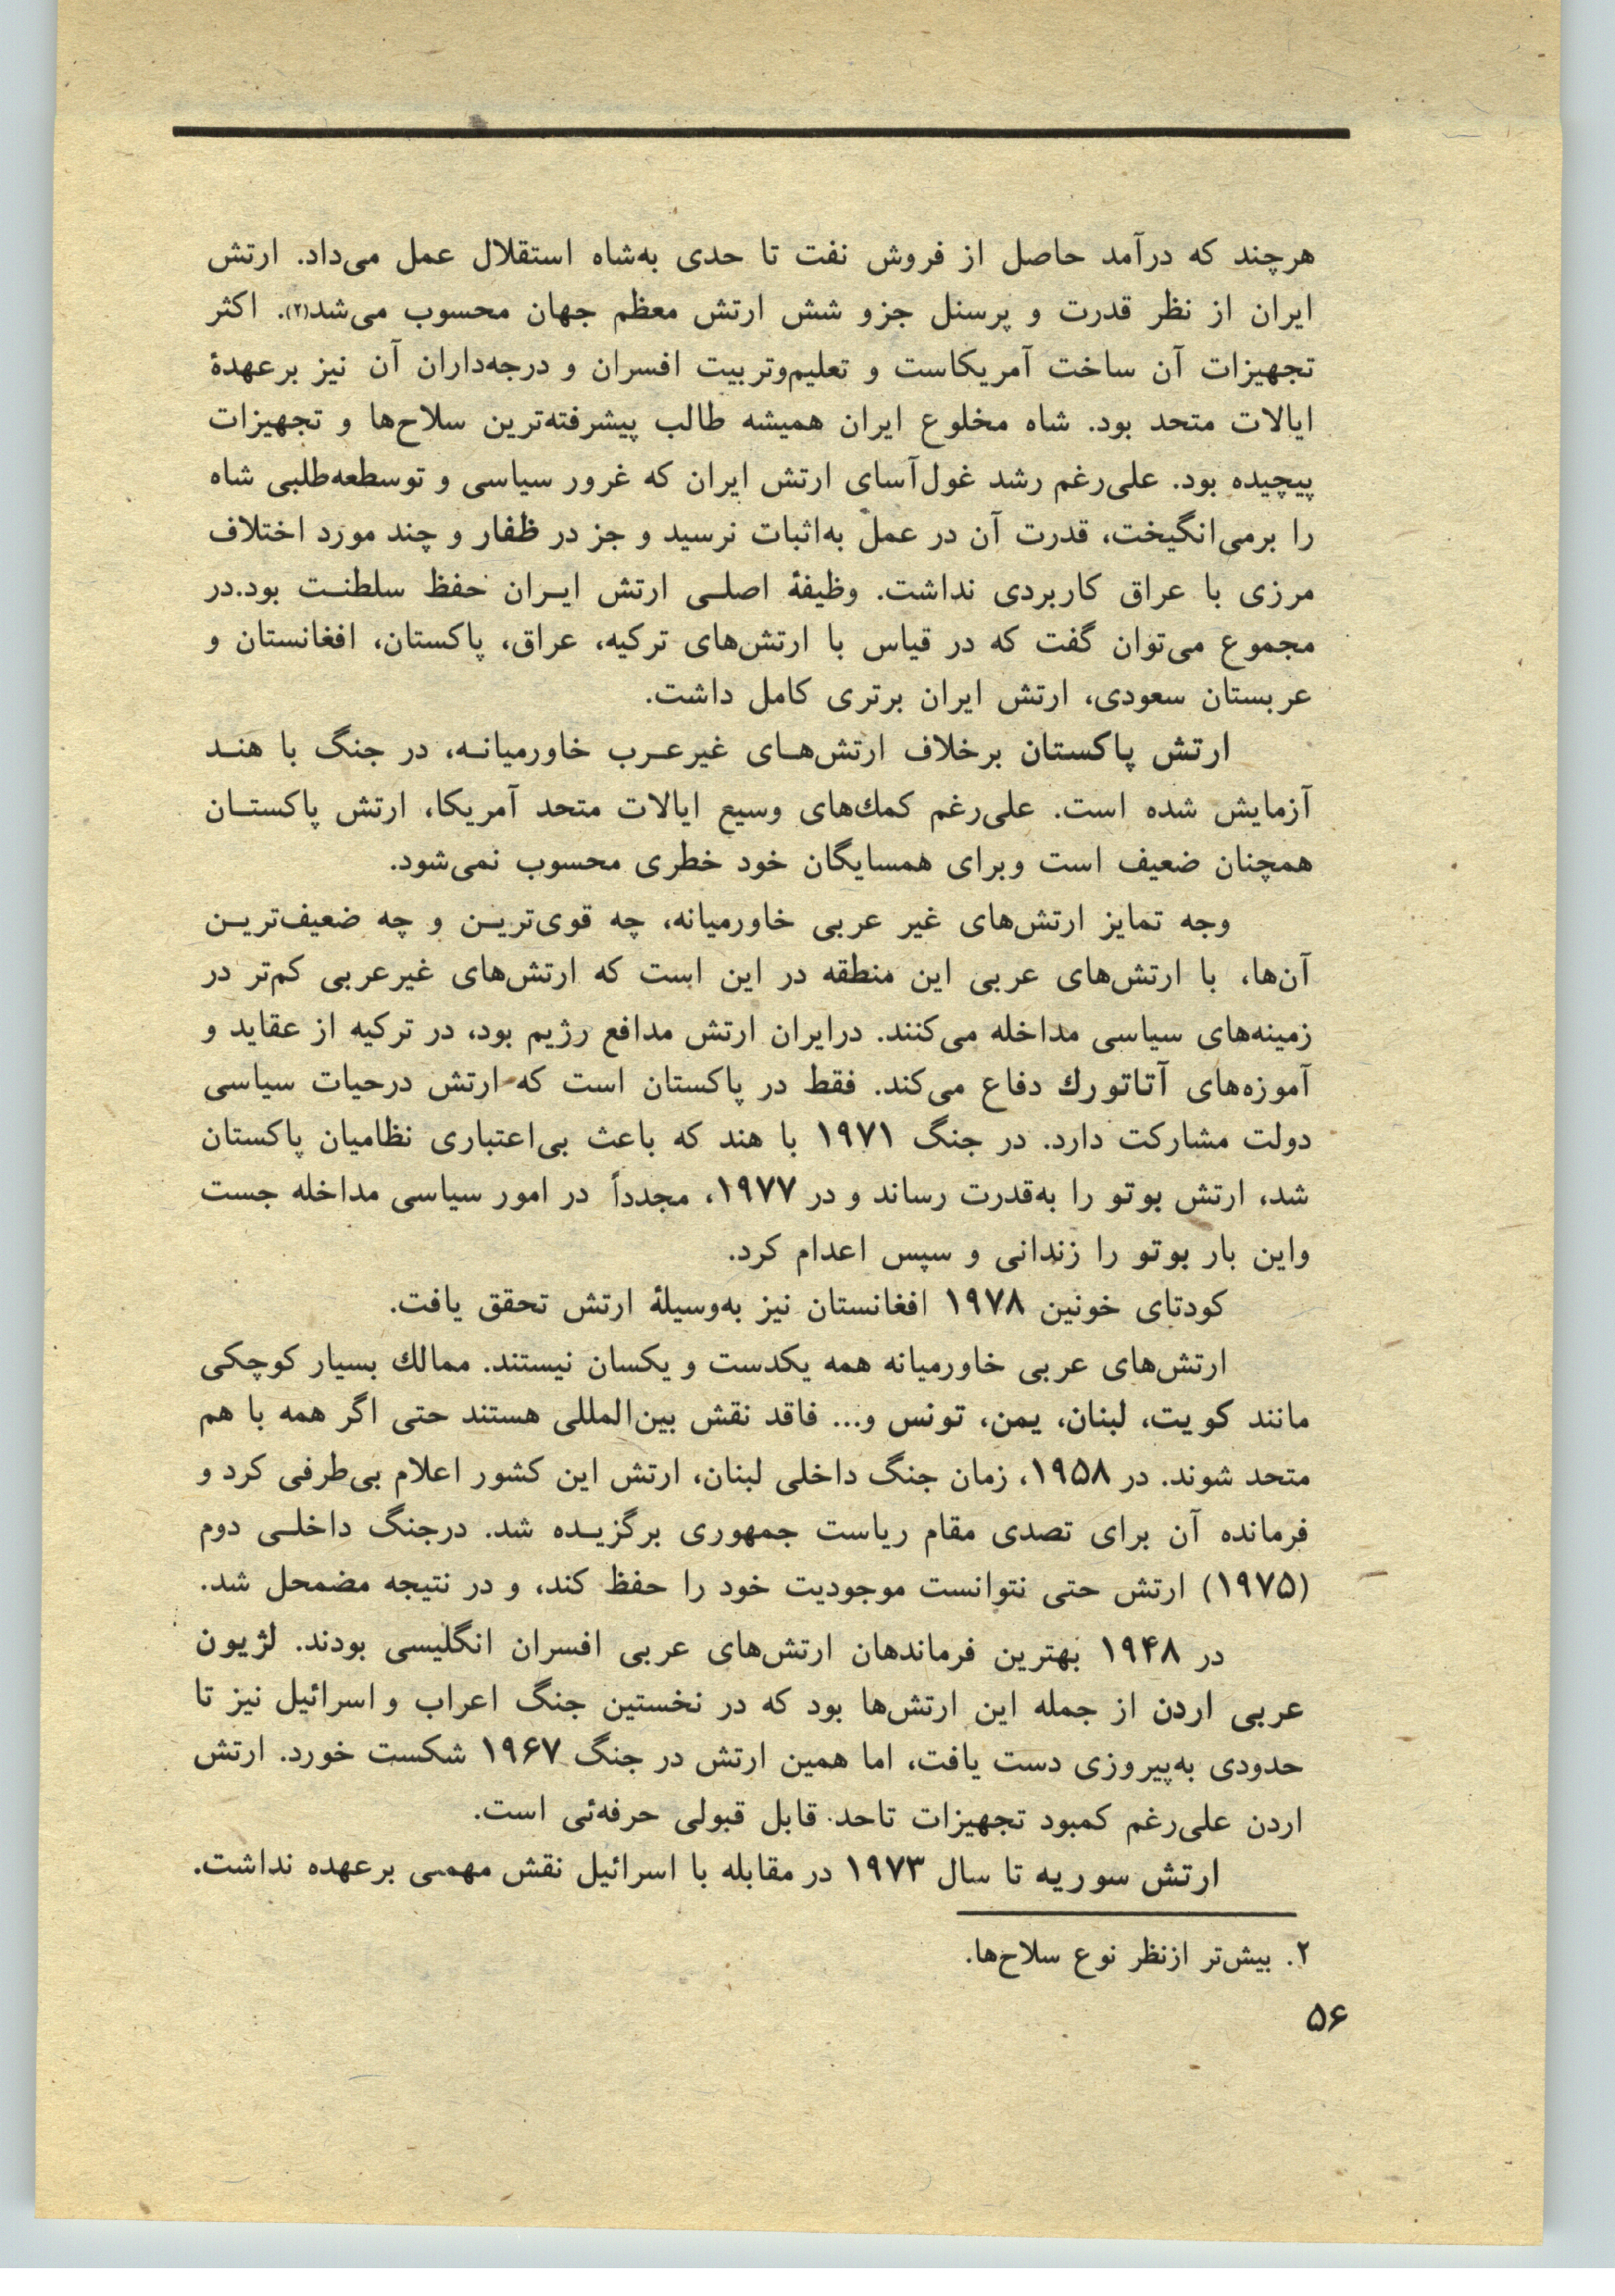 هرچند که درآمد حاصل از فروش نفت تا حدی به‌شاه استقلال عمل می‌داد. ارتش
ایران از نظر قدرت و پرسنل جزو شش ارتش معظم جهان محسوب می‌شد(۲). اکثر
تجهیزات آن ساخت آمریکاست و تعلیم‌وتربیت افسران و درجه‌داران آن نیز برعهدهٔ
ایالات متحد بود. شاه مخلوع ایران همیشه طالب پیشرفته‌ترین سلاح‌ها و تجهیزات
پیچیده بود. علی‌رغم رشد غول‌آسای ارتش ایران که غرور سیاسی و توسطعه‌طلبی شاه
را برمی‌انگیخت، قدرت آن در عمل به‌اثبات نرسید و جز در ظفار و چند مورد اختلاف
مرزی با عراق کاربردی نداشت. وظیفهٔ اصلـی ارتش ایـران حفظ سلطنـت بود.در
مجموع می‌توان گفت که در قیاس با ارتش‌های ترکیه، عراق، پاکستان، افغانستان و
عربستان سعودی، ارتش ایران برتری کامل داشت.
ارتش پاکستان برخلاف ارتش‌هـای غیرعـرب خاورمیانـه، در جنگ با هنـد
آزمایش شده است. علی‌رغم كمك‌های وسیع ایالات متحد آمریکا، ارتش پاکستـان
همچنان ضعیف است وبرای همسایگان خود خطری محسوب نمی‌شود.
وجه تمایز ارتش‌های غیر عربی خاورمیانه، چه قوی‌تریـن و چه ضعیف‌تریـن
آن‌ها، با ارتش‌های عربی این منطقه در این است که ارتش‌های غیرعربی کم‌تر در
زمینه‌های سیاسی مداخله می‌کنند. درایران ارتش مدافع رژیم بود، در ترکیه از عقاید و
آموزه‌های آتاتورك دفاع می‌کند. فقط در پاکستان است که ارتش درحیات سیاسی
دولت مشارکت دارد. در جنگ ۱۹۷۱ با هند که باعث بی‌اعتباری نظامیان پاکستان
شد، ارتش بوتو را به‌قدرت رساند و در ۱۹۷۷، مجدداً در امور سیاسی مداخله جست
واین بار بوتو را زندانی و سپس اعدام کرد.
کودتای خونین ۱۹۷۸ افغانستان نیز به‌وسیلهٔ ارتش تحقق یافت.
ارتش‌های عربی خاورمیانه همه یکدست و یکسان نیستند. ممالك بسیار کوچکی
مانند کویت، لبنان، یمن، تونس و... فاقد نقش بین‌المللی هستند حتی اگر همه با هم
متحد شوند. در ۱۹۵۸، زمان جنگ داخلی لبنان، ارتش این کشور اعلام بی‌طرفی کرد و
فرمانده آن برای تصدی مقام ریاست جمهوری برگزیـده شد. درجنگ داخلـی دوم
(۱۹۷۵) ارتش حتی نتوانست موجودیت خود را حفظ کند، و در نتیجه مضمحل شد.
در ۱۹۴۸ بهترین فرماندهان ارتش‌های عربی افسران انگلیسی بودند. لژیون
عربی اردن از جمله این ارتش‌ها بود که در نخستین جنگ اعراب و اسرائیل نیز تا
حدودی به‌پیروزی دست یافت، اما همین ارتش در جنگ ۱۹۶۷ شکست خورد. ارتش
اردن علی‌رغم کمبود تجهیزات تاحد قابل قبولی حرفه‌ئی است.
ارتش سوریه تا سال ۱۹۷۳ در مقابله با اسرائیل نقش مهمی برعهده نداشت.
۲. بیش‌تر ازنظر نوع سلاح‌ها.
۵۶